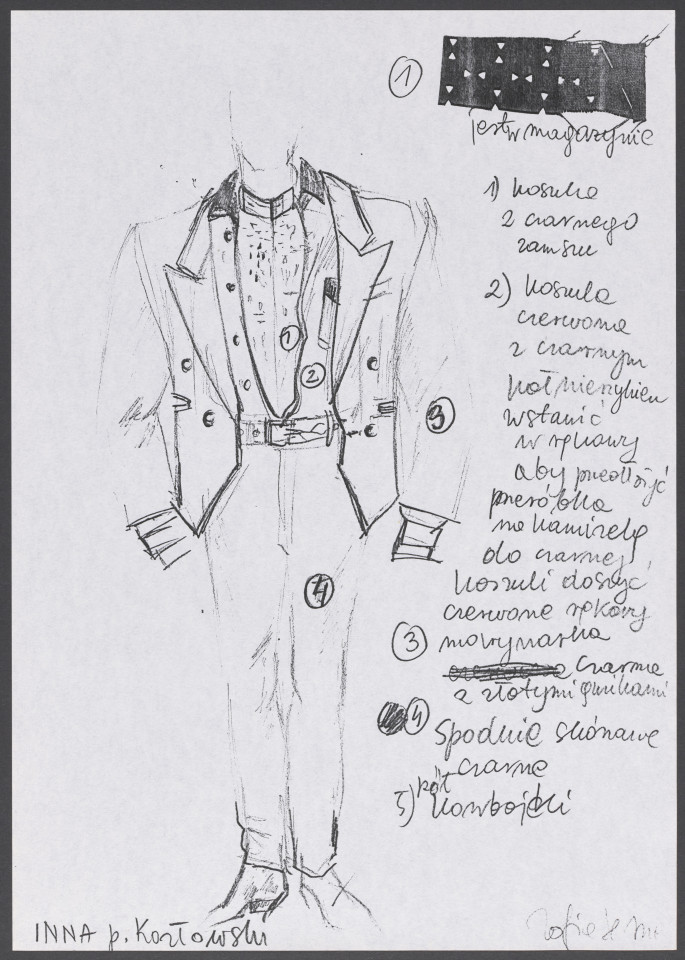 1
jest w magazynie
1) koszula
z czarnego
zamszu
2) koszula
czerwona
z czarnym
kołnierzykiem
wstawić
w rękawy
aby przedłużyć
przeróbka
na kamizelę
do czarnej
koszuli doszyć
czerwone rękawy
3 marynarka
czarna
z złotymi guzikami
4 Spodnie skórzane
czarne
5) pół kowbojki
1
2
3
4
INNA p. Kozłowski